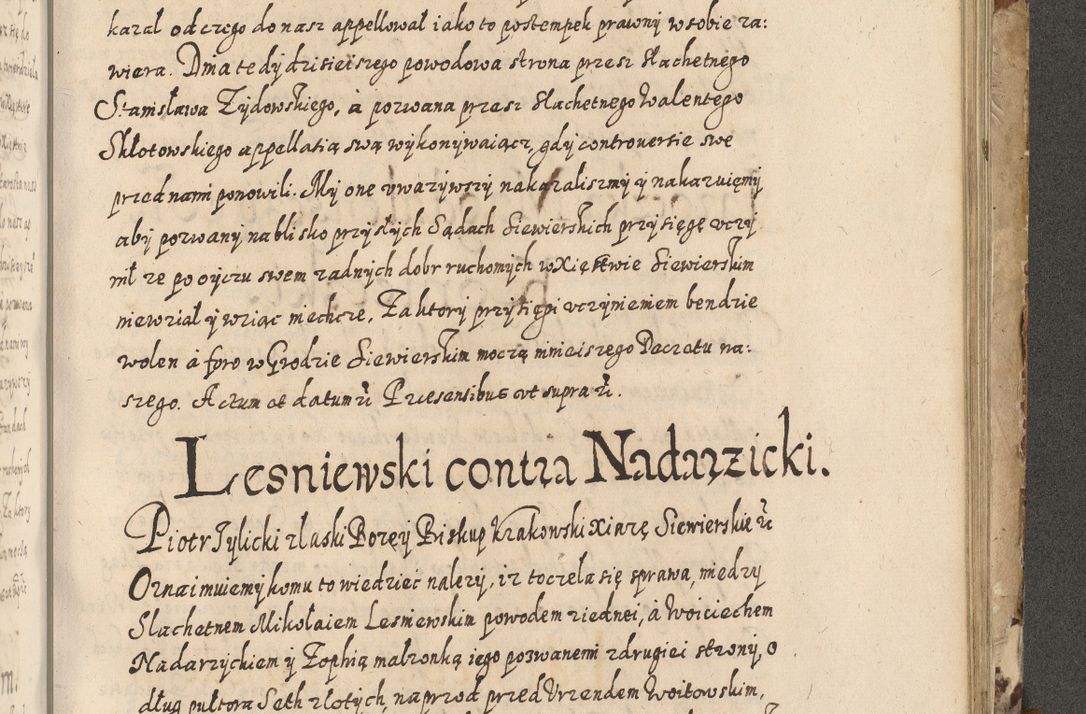 kazał od czego do nasz appellował i iako to postempek prawny w sobie za:
wiera. Dnia tedy dzisieiszego powodowa strona przesz Slachetnego
Stanisława Żydowskiego, à pozwana przesz Slachetnego Walentego
Skłotowskiego appellatią swą wykonywaiącz, gdy controversie swe
przed nami ponowili. My one vwazywszy nakazaliszmy y nakazuięmy
aby pozwany na blisko przysłych Sądach Siewierskich przysięgę vczy
nił ze po oyczu swem zadnych dobr ruchomych w Xięstwie Siewierskim
niewział y wziąc niechcze, Za ktory przysięgi vczynieniem bendzie
wolen à foro w Grodzie Siewierskim moczą ninieiszego Decretu na:
szego. Actum et datum ut Præsentibus vt supra
Lesniewski contra Nadarzicki.
Piotr Tylicki z laski Bozęy Biskup Krakowski xiązę Siewierskie
Oznaimuiemy komu to wiedzieć nalezy, iz toczeła się sprawa, miedzy
Slachetnem Mikołaiem Lesniewskim powodem z iednei, à Woiciechem
Nadarzyckiem y Zophią malzonką iego pozwanemi z drugiei strony, o
dług pułtora Seth złotych, naprzod przed Vrzendem Woitowskim,